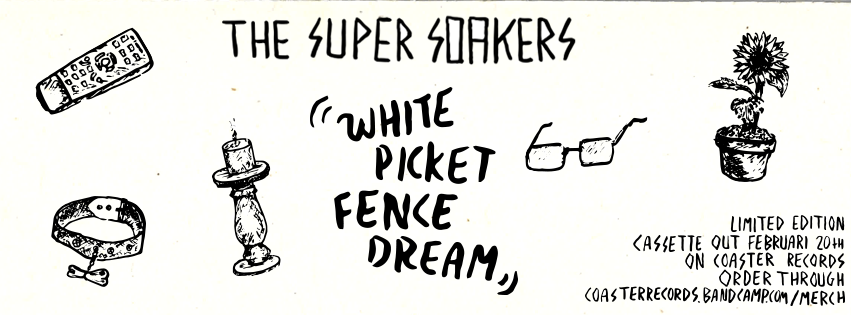 THE SUPER SOAKERS
"WHITE
PICKET
FENCE
DREAM"
LIMITED EDITION
CASSETTE OUT FEBRUARI 20TH
ON COASTER RECORDS
ORDER THROUGH
COASTERRECORDS.BANDCAMP.COM/MERCH